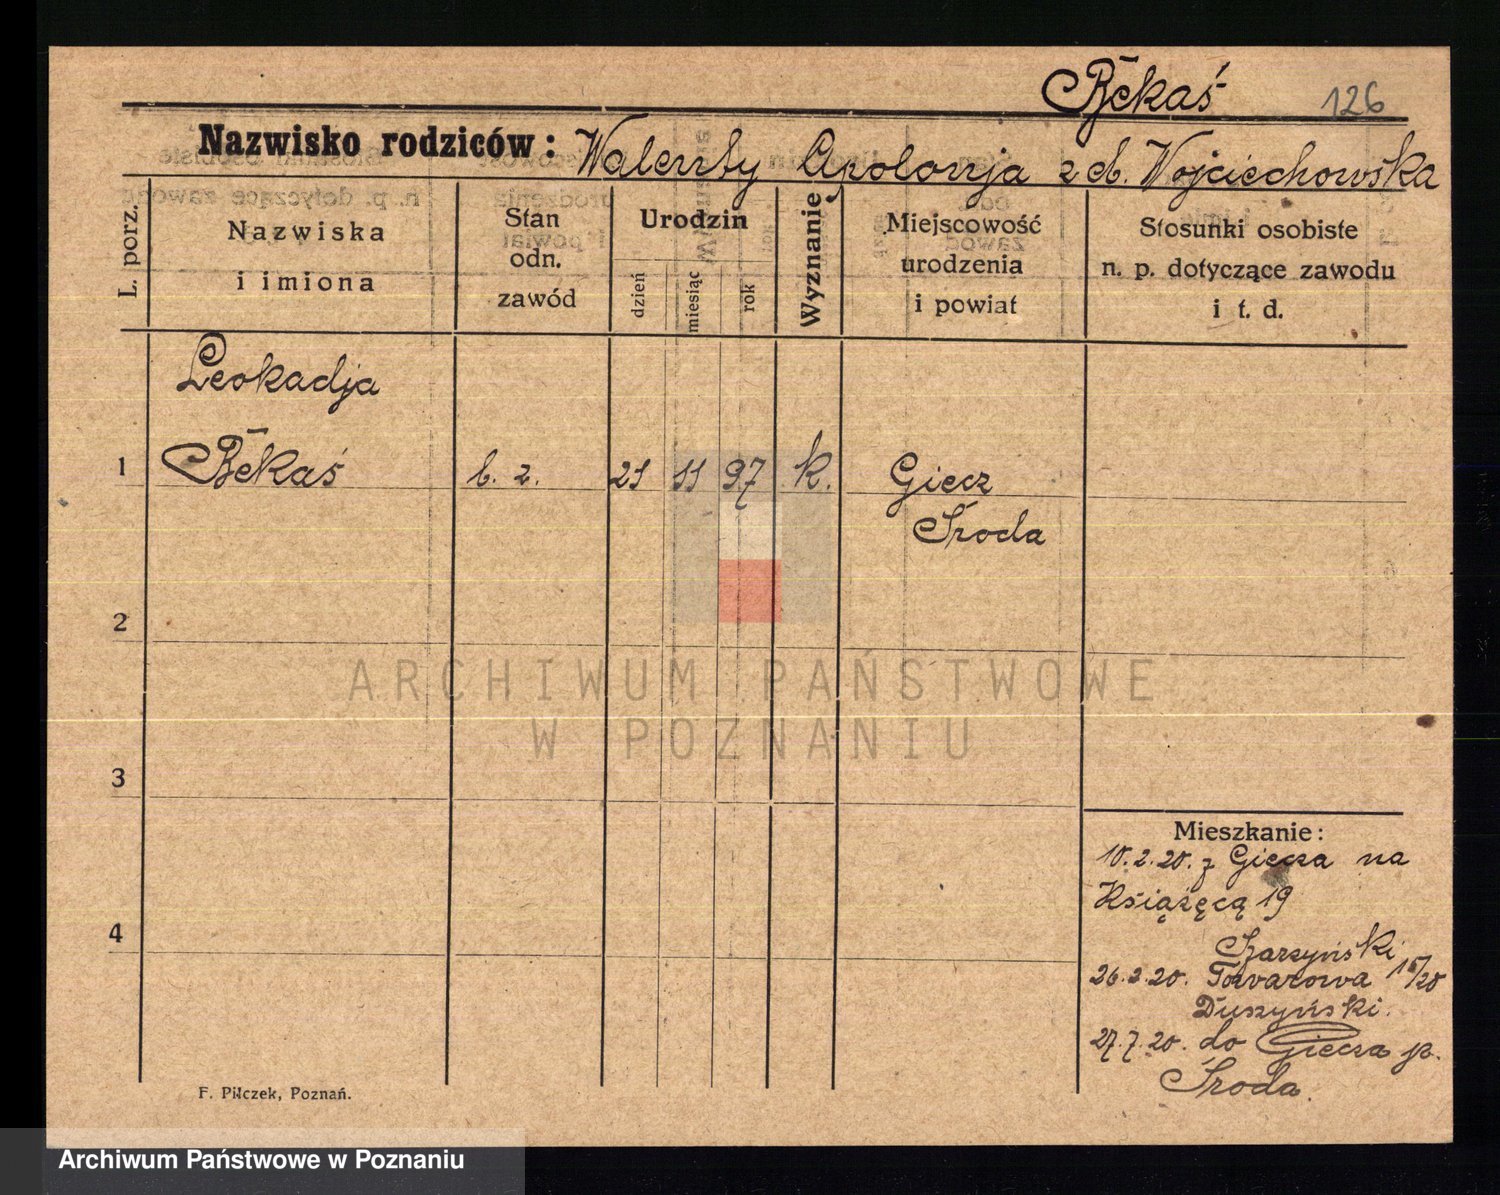 Bekaś 126
Nazwisko rodziców: Walenty Apolonja z d. Wojciechowska
L. porz.
Nazwiska
i imiona
Stan
odn.
zawód
Urodzin
dzień
miesiąc
rok
Wyznanie
Miejscowość
urodzenia
i powiat
Stosunki osobiste
n. p. dotyczące zawodu
i t. d.
Leokadja
1 Bekaś b. z. 21 11 97 k. Giecz
Środa
2
ARCHIWUM PAŃSTWOWE
W POZNANIU
3
4
Mieszkanie:
10.2.20. z Giecza na
Książęcą 19
26.2.20. Towarowa 15/20
Duszyński.
27.7.20. do Giecza p.
Środa.
F. Pilczek, Poznań.
Archiwum Państwowe w Poznaniu